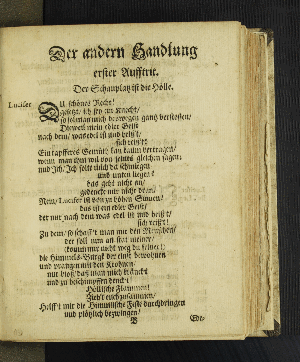 Der andern Handlung
erster Aufftrit.
Der Schauplatz ist die Hölle.
Lucifer
DU schönes Recht!
gesetzt/ ich sey ein Knecht/
so soll man mich deswegen gantz verstossen/
Dieweil mein edler Geist
nach dem/ was edel ist und heist/
sich reist?
Ein tapfferes Gemüth kan kaum vertragen/
wenn man ihm wil von seines gleichen sagen;
und Ich/ Ich solte mich da schmiegen
und unten liegen?
das geht nicht an/
gedenckt mir nicht dran.
Nein/ Lucifer ist von zu hohen Sinnen/
das ist ein edler Geist/
der nur nach dem was edel ist und heist/
sich reist!
Zu dem/ so schafft man mir den Menschen/
der soll nun an statt meiner/
die Himmels-Burg
und prangen mit den Krohnen/
nur bloß/ daß man mich kränckt
und zu beschimpffen denckt
Höllische Flammen!
Zieht euch zusammen/
Helfft mir die Himmlische Feste durchdringen
und plötzlich bezwingen/
B